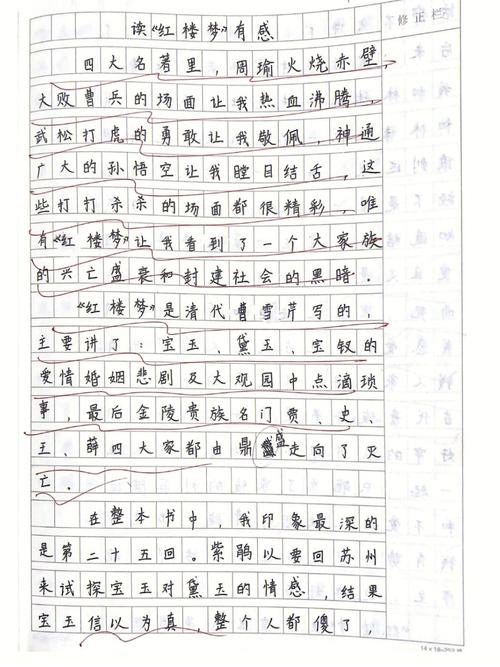 读《红楼梦》有感
修正栏
四大名著里，周瑜火烧赤壁，
大败曹兵的场面让我热血沸腾，
武松打虎的勇敢让我敬佩，神通
广大的孙悟空让我瞠目结舌，这
些打打杀杀的场面都很精彩，唯
有《红楼梦》让我看到了一个大家族
的兴亡盛衰和封建社会的黑暗．
《红楼梦》是清代曹雪芹写的，
主要讲了：宝玉、黛玉、宝钗的
爱情婚姻悲剧及大观园中点滴琐
事，最后金陵贵族名门贾、史、
王、薛四大家都由鼎盛走向了灭
亡．
在整本书中，我印象最深的
是第二十五回。紫鹃以要回苏州
来试探宝玉对黛玉的情感，结果
宝玉信以为真，整个人都傻了，